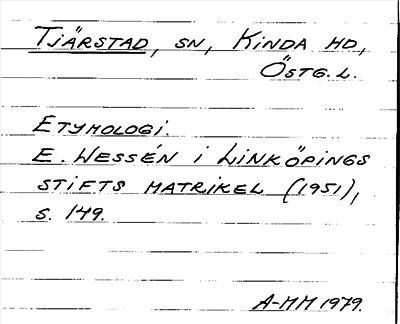 TJÄRSTAD, SN, KINDA HD,
ÖSTG.L.
ETYMOLOGI.
E. WESSÉN I LINKÖPINGS
STIFTS MATRIKEL (1951),
S. 149.
A-MM 1979.